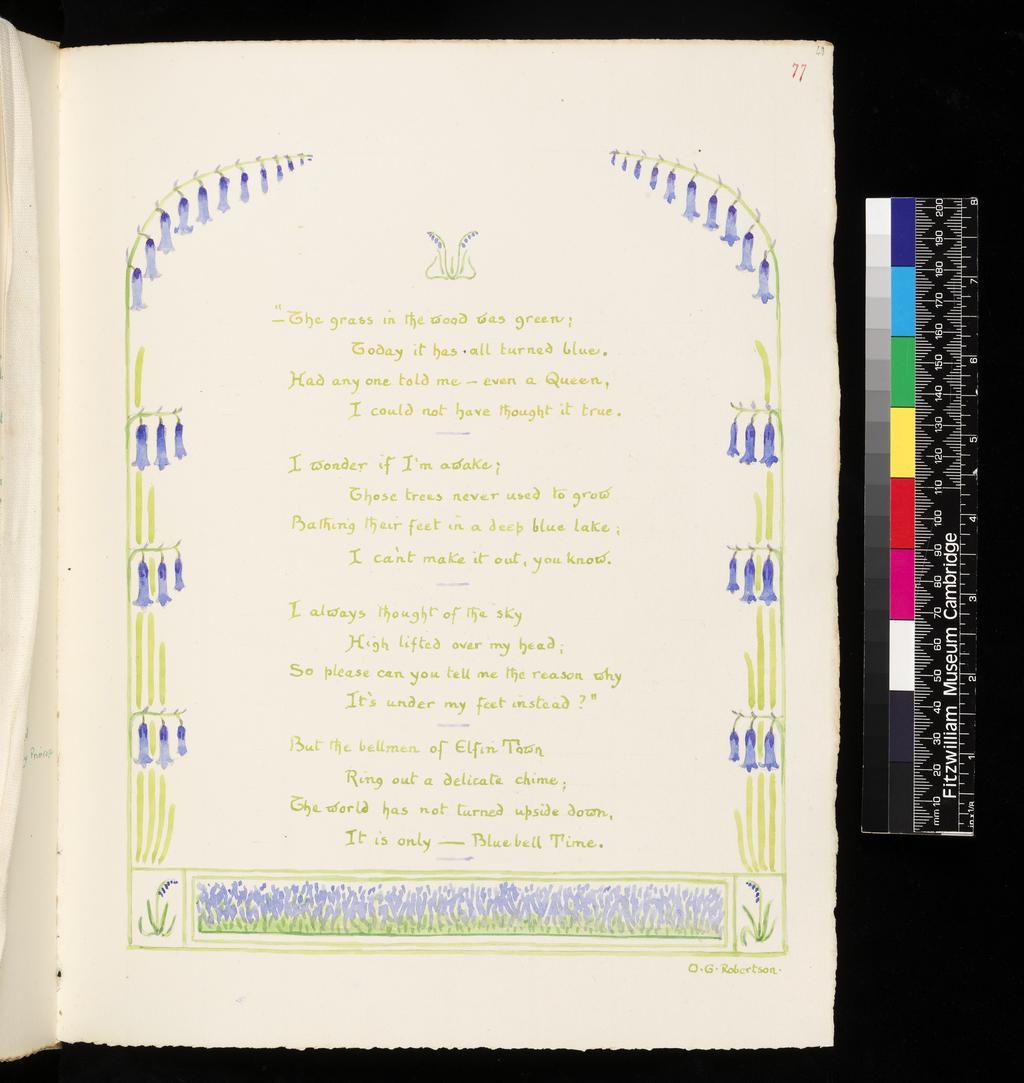 77
"–The grass in the wood was green;
Today it has all turned blue.
Had any one told me – even a Queen,
I could not have thought it true.
I wonder if I'm awake;
Those trees never used to grow
Bathing their feet in a deep blue lake;
I can't make it out, you know.
I always thought of the sky
High lifted over my head;
So please can you tell me the reason why
It's under my feet instead?"
But the bellmen of Elfin Town
Ring out a delicate chime;
The world has not turned upside down,
It is only — Bluebell Time.
O.G. Robertson.
Fitzwilliam Museum Cambridge
mm 10 20 30 40 50 60 70 80 90 100 110 120 130 140 150 160 170 180 190 200
1 2 3 4 5 6 7 8